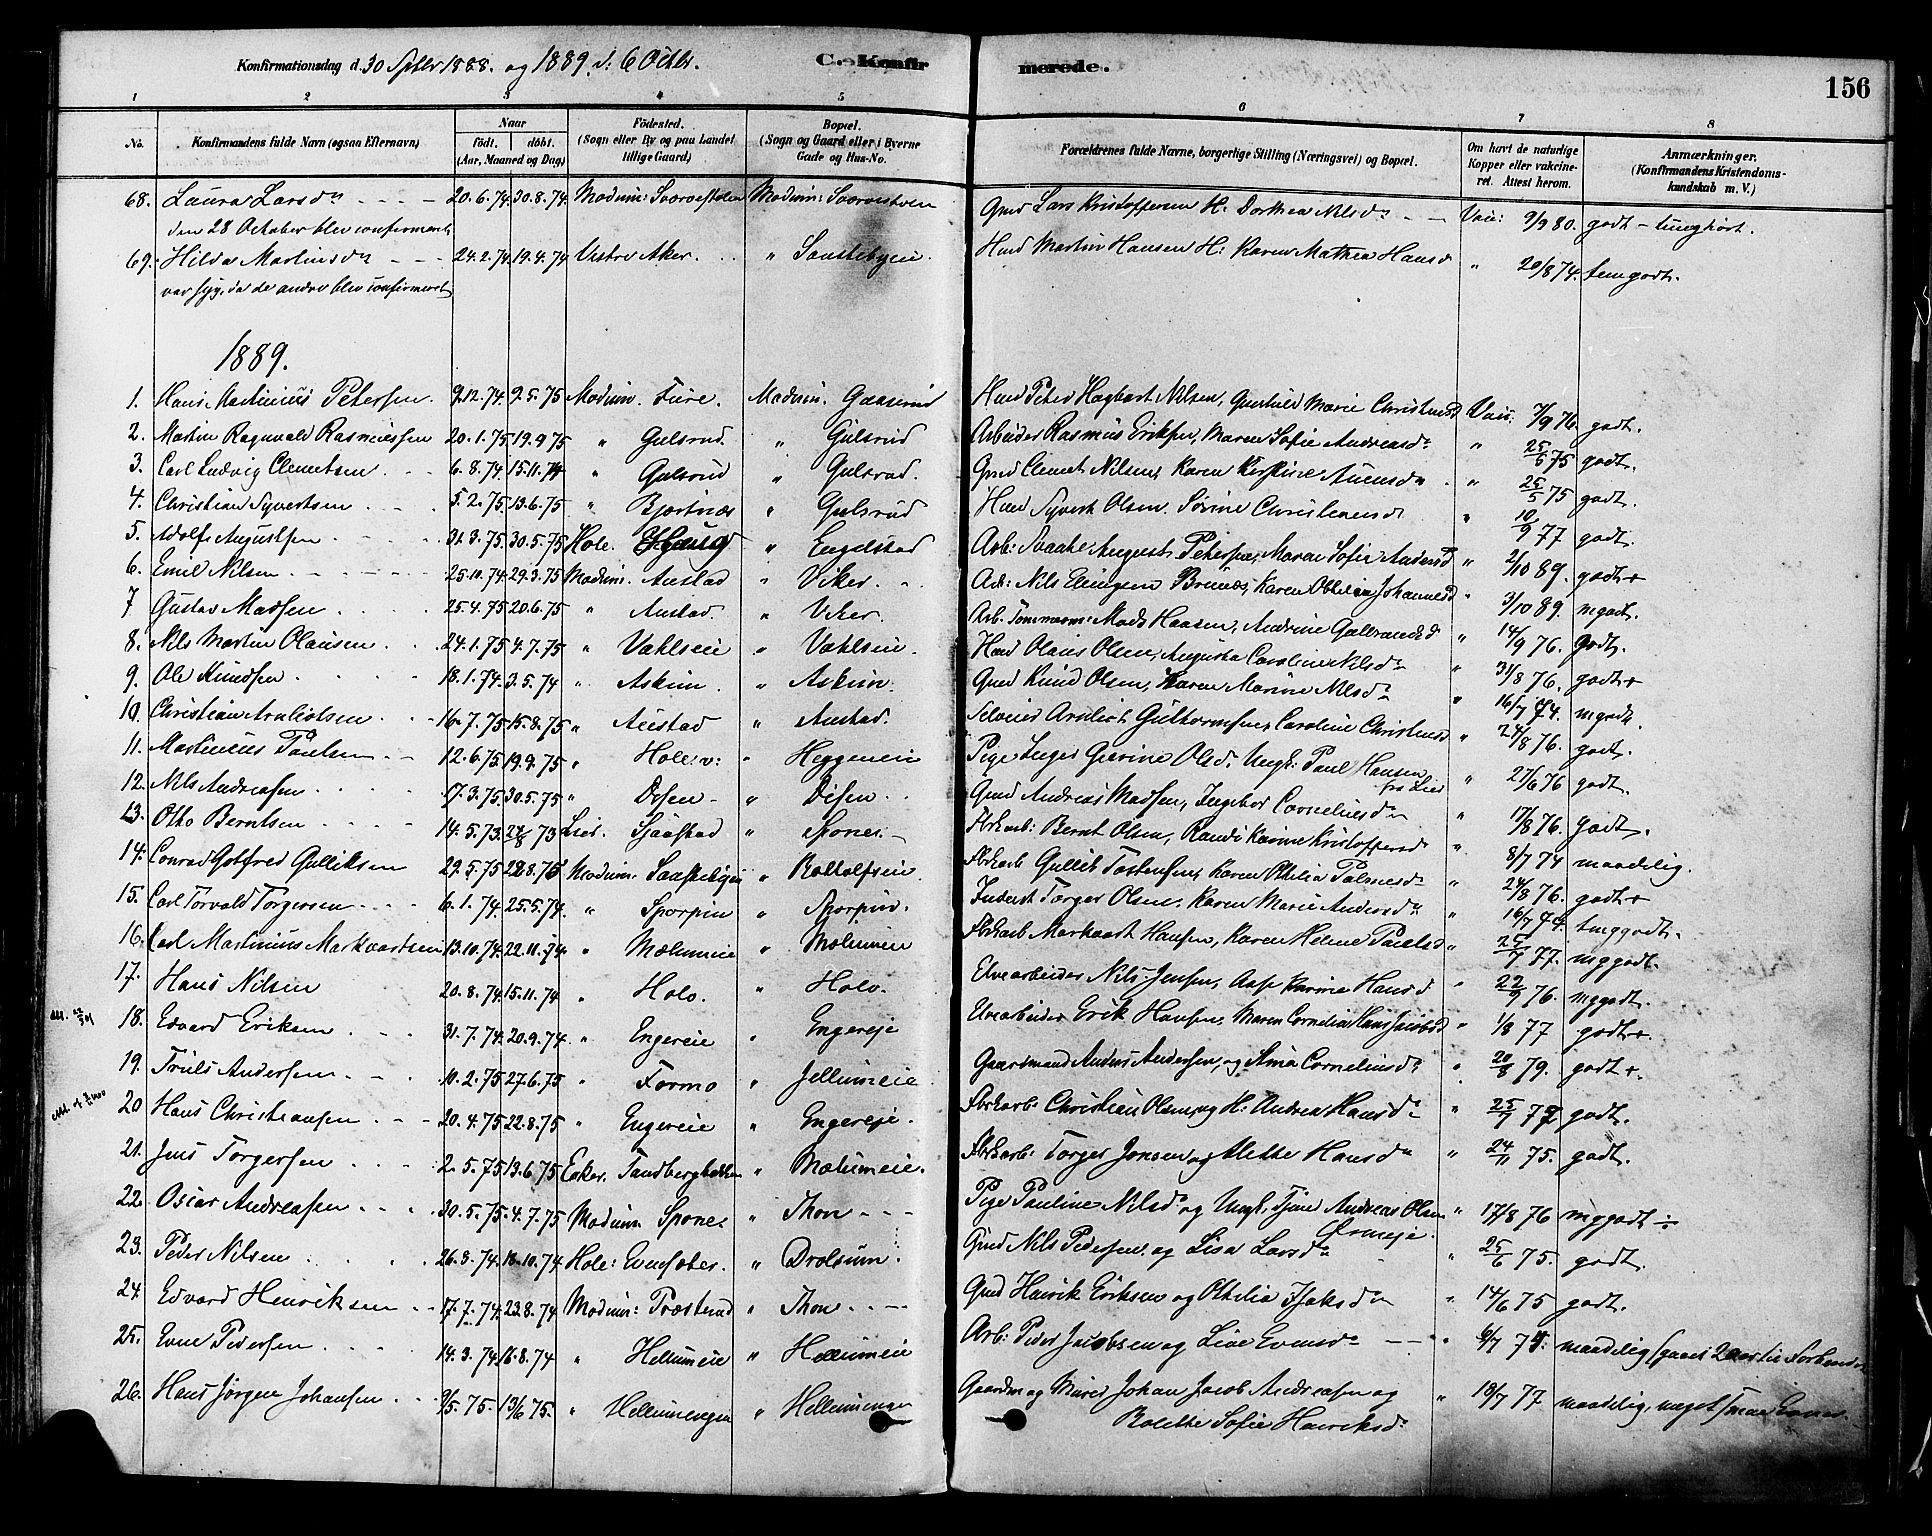 Konfirmationsdag d. 30 Sptbr 1888. og 1889 d: 6 Octbr. C. Konfirmerede. 156
1 2 3 4 5 6 7 8
No. Konfirmandens fulde Navn (ogsaa Efternavn) Naar födt. döbt. (Aar, Maaned og Dag) Födested. (Sogn eller By og paa Landet tillige Gaard) Bopæl. (Sogn og Gaard eller i Byerne Gade og Hus-No. Forældrenes fulde Navne, borgerlige Stilling (Næringsvei) og Bopæl. Om havt de naturlige Kopper eller vakcineret. Attest herom. Anmærkninger. (Konfirmandens Kristendomskundskab m. V.)
68. Laura Larsdr 20.6.74 30.8.74 Modum: Modum: Gmd Lars Kristoffersen H: Dorthea Nilsdr Vac: 9/9 80. godt - tunghört.
den 28 October blev confirmeret
69. Hilda Martinsdr 24.2.74 19.4.74 Vestre Aker " Martin Hansen H: Karen Mathea Hansd " 20/8 74. temgodt.
var syg, da de andre blev confirmeret
1889.
1. Hans Martinius Petersen. 9.12.74. 9.5.75 Modum. Fure. Modum. Gaaserud Peter Hagbart Nilsen, Gunhild Marie Christensd Vac. 7/9 76. godt.
2. Martin Ragnvald Rasmussen 20.1.75 19.9.75 " Gulsrud. " Gulsrud Arbeider Rasmus Eriksen, Maren Sofie Andreasdr " 25/5 75 godt.
3. Carl Ludvig Clemetsen 6.8.74 15.11.74 " Gulsrud " Gulsrud. Gmd Clemet Nilsen, Karen " 25/5 75 godt.
4. Christian Syvertsen 5.2.75. 13.6.75 " Bjertnæs " Gulsrud Syvert Olsen. Sörine Christiansd " 10/9 77 godt.
5. Adolf Augustsen 31.3.75. 30.5.75 Hole. Haug " Engelstad Arb: August Petersen, Maren Sofie Andersd " 2/10 89. godt+
6. Emil Nilsen 25.10.74 29.3.75 Modum. Austad " Viker. Arb: Nils Ellingsen Karen Othilia Johannesd " 3/10 89. mgodt.
7 Gustav Madsen 25.4.75 20.6.75 " Austad. " Viker. Arb. Tømmerm: Mads Hansen, Andrine Gulbrandsd " 14/9 76. godt.
8. Nils Martin Olausen 24.1.75 4.7.75 " Vahlseie " Vahlseie. Olaus Olsen, Augusta Caroline Nilsdr " 31/8 76. godt+
9. Ole Knudsen 18.1.74. 3.5.74 " Askim. " Askim. Gmd Knud Olsen, Karen Marine Nilsdr " 16/7 74. mgodt.
10. Christian Arnliotsen 16.7.75 15.8.75 " Austad " Austad. Selveier Arnliot Guttormsen, Caroline Christensd " 24/8 76. godt.
11. Martinius Paulsen 12.6.75. 19.9.75 " Hole v: " Heggeneie Pige Inger Gurine Olsd. Ungk: Paul Hansen fra Lier " 27/6 76 godt.
12. Nils Andreassen 17.3.75. 30.5.75 " Disen - " Disen Gmd Andreas Madsen, Ingebor Corneliusdr " 17/8 76. godt.
13. Otto Berntsen 14.5.73. 22/6 73 Lier. Sjåstad " Spones. Fbrkarb: Bernt Olsen, Randi Karine Kristoffersd " 8/7 74 maadelig.
14. Conrad Gotfred Gulliksen 29.5.75 22.8.75 Modum: " Fbrkarb Gullik Tostensen, Karen Othilia Palmesdr " 24/8 76. godt+
15. Carl Torvald Torgersen 6.1.74. 25.5.74. " Sporpin " Sporpin. Inderst Torger Olsen, Karen Marie Andersdr " 16/7 74. temggodt.
16. Karl Martinius Markvartsen 13.10.74. 22.11.74. " Mælumeie " Mælumeie Fbrkarb Markvart Hansen, Karen Helene Paulsd " 25/7 77. mggodt.
17. Hans Nilsen 20.8.74. 15.11.74 " Holv. " Holv. Elvearbeider Nils Jensen, Aase Karine Hansd " 22/9 76. mggodt.
18. Edvard Eriksen 31.7.74. 20.9.74 " Engereie " Engereje Elvearbeider Erik Hansen, Maren Cornelia Hans Jacobsd " 1/8 77 godt+.
19. Truls Andersen 10.2.75 27.6.75 " Formo " Jellumeie Gaardmand Anders Andersen, og Stina Corneliusdr " 20/8 79. godt+.
20 Hans Christiansen 20.4.75 22.8.75 " Engereie " Engereje. Fbrkarb: Christian Olsen og H. Andrea Hansdr " 25/7 77 godt.
21. Jens Torgersen 2.5.75 13.6.75 Eeker. Tandbergbakken " Mælumeie. Fbrkarb: Torger Jonsen og Mette Hansdr " 24/11 75. godt.
22. Oscar Andreassen 30.5.75. 4.7.75 Modum. Spones " Thon Pige Pauline Nilsd og Ungk. Tjener Andreas Olsen " 17/8 76 mggodt ÷
23. Peder Nilsen 26.8.74. 18.10.74 Hole: " Drolsum. Gmd Nils Pedersen og Lisa Larsdr " 25/6 75. godt.
24. Edvard Henriksen 17.7.74. 23.8.74 Modum: Præsterud " Thon Gmd Henrik Eriksen og Othilia Isaksdr " 14/6 75 godt.
25. Even Pedersen 14.3.74. 16.8.74 " Hellumeie " Hellumeie Arb: Peder Jacobsen og Live Evensdr " 6/7 75: maadelig
26. Hans Jörgen Johansen 9/5.75. 13/6 75. " Hellumengen " Hellumengen Gaardm og Murer Johan Jacob Andreassen og " 19/7 77 maadelig, meget smaa Evner.
Bolette Sofie Henriksdr